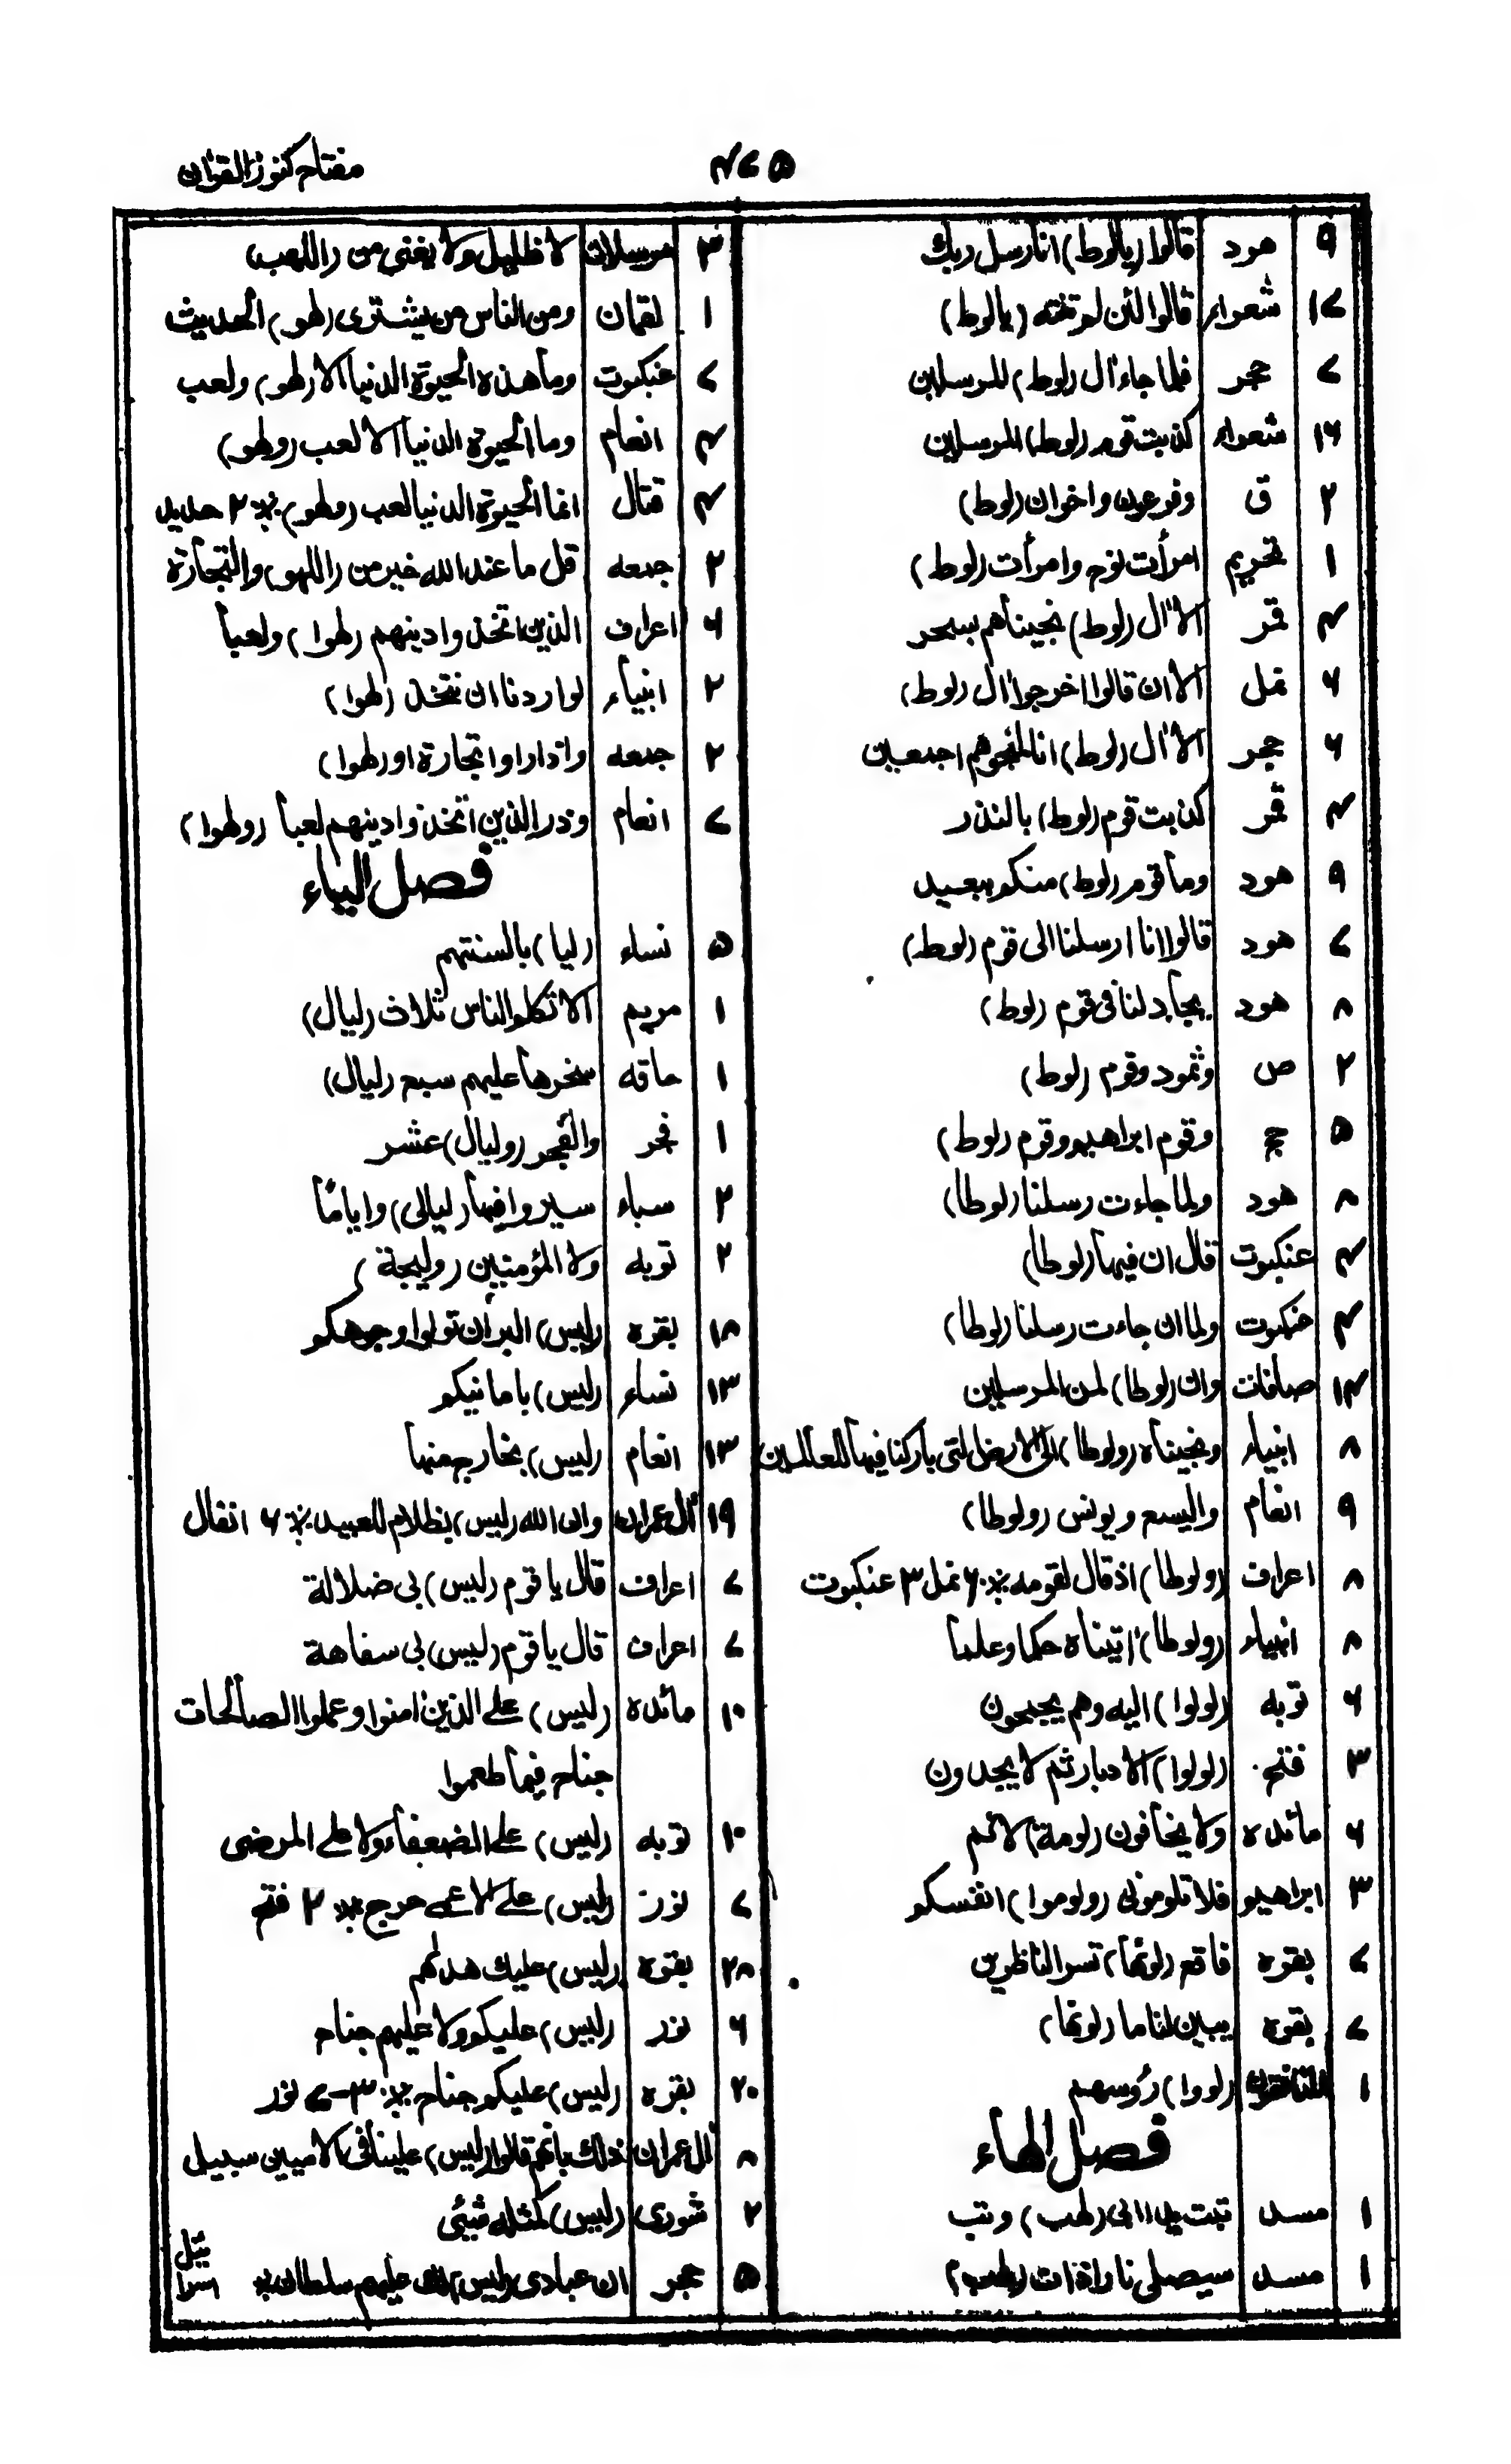 مفتاح کنوز القرآن
۴۷۵
۹ هود قالوا (یا لوط) انا رسل ربك
۱۷ شعراء قالوا لئن لم تنته (یا لوط)
۷ حجر فلما جاء اٰل (لوط) المرسلین
۱۶ شعراء کذبت قوم (لوط) المرسلین
۲ ق وفرعون واخوان (لوط)
۱ تحریم امرأت نوح وامرأت (لوط)
۴ قمر الا اٰل (لوط) نجیناهم بسحر
۶ نمل الا ان قالوا اخرجوا اٰل (لوط)
۶ حجر الا اٰل (لوط) انا لمنجوهم اجمعین
۴ قمر کذبت قوم (لوط) بالنذر
۹ هود وما قوم (لوط) منکم ببعید
۷ هود قالوا انا ارسلنا الی قوم (لوط)
۸ هود یجادلنا فی قوم (لوط)
۲ ص وثمود وقوم (لوط)
۵ حج وقوم ابراهیم وقوم (لوط)
۸ هود ولما جاءت رسلنا (لوطا)
۴ عنکبوت قال ان فیها (لوطا)
۴ عنکبوت ولما ان جاءت رسلنا (لوطا)
۱۴ صافات وان (لوطا) لمن المرسلین
۸ انبیاء ونجیناه (ولوطا) الی الارض التی بارکنا فیها للعالمین
۹ انعام والیسع ویونس (ولوطا)
۸ اعراف (ولوطا) اذ قال لقومه ٪ ۶ نمل ۳ عنکبوت
۸ انبیاء (ولوطا) اٰتیناه حکما وعلما
۶ توبه (لولوا) الیه وهم یجمحون
۳ فتح (لولوا) الادبار ثم لا یجدون
۶ مائده ولا یخافون (لومة) لائم
۳ ابراهیم فلا تلومونی (ولوموا) انفسکم
۷ بقره فاقع (لونها) تسر الناظرین
۷ بقره یبین لنا ما (لونها)
۱ المنافقون (لووا) رؤسهم
فصل الهاء
۱ مسد تبت یدا ابی (لهب) وتب
۱ مسد سیصلی نارا ذات (لهب)
۳ مرسلات لا ظلیل ولا یغنی من (اللهب)
۱ لقمان ومن الناس من یشتری (لهو) الحدیث
۷ عنکبوت وما هذه الحیوة الدنیا الا (لهو) ولعب
۴ انعام وما الحیوة الدنیا الا لعب (ولهو)
۴ قتال انما الحیوة الدنیا لعب (ولهو) ٪ ۲ حدید
۲ جمعه قل ما عند الله خیر من (اللهو) والتجارة
۶ اعراف الذین اتخذوا دینهم (لهوا) ولعبا
۲ انبیاء لو اردنا ان نتخذ (لهوا)
۲ جمعه واذا راوا تجارة او (لهوا)
۷ انعام وذر الذین اتخذوا دینهم لعبا (ولهوا)
فصل الیاء
۵ نساء (لیا) بالسنتهم
۱ مریم الا تکلم الناس ثلاث (لیال)
۱ حاقه سخرها علیهم سبع (لیال)
۱ فجر والفجر (ولیال) عشر
۲ سباء سیروا فیها (لیالی) وایاماً
۲ توبه ولا المؤمنین (ولیجة)
۱۸ بقره (لیس) البر ان تولوا وجوهکم
۱۳ نساء (لیس) بامانیکم
۱۳ انعام (لیس) بخارج منها
۱۹ اٰل عمران وان الله (لیس) بظلام للعبید ٪ ۶ انفال
۷ اعراف قال یا قوم (لیس) بی ضلالة
۷ اعراف قال یا قوم (لیس) بی سفاهة
۱۰ مائده (لیس) علے الذین امنوا وعملوا الصالحات
جناح فیما طعموا
۱۰ توبه (لیس) علے الضعفاء ولا علے المرضی
۷ نور (لیس) علے الاعمی حرج ٪ ۲ فتح
۲۸ بقره (لیس) علیك هداهم
۶ نور (لیس) علیکم ولا علیهم جناح
۲۰ بقره (لیس) علیکم جناح ٪ ۳-۷ نور
۸ اٰل عمران ذلك بانهم قالوا (لیس) علینا فی الامیین سبیل
۲ شوری (لیس) کمثله شیئی
۵ حجر ان عبادی (لیس) لك علیهم سلطان ٪ اسرائیل